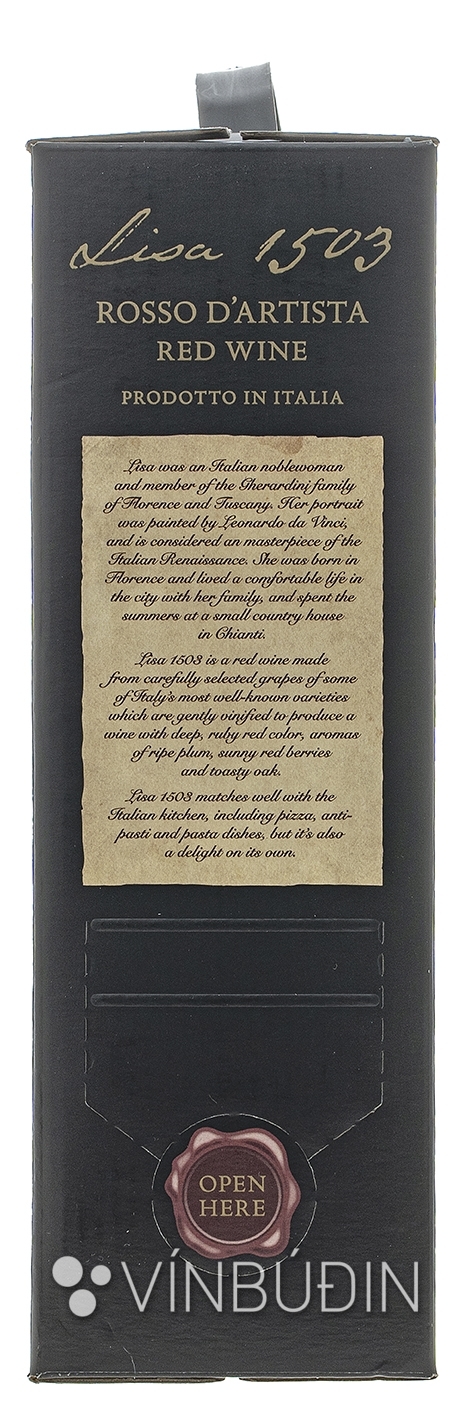 Lisa 1503
ROSSO D'ARTISTA
RED WINE
PRODOTTO IN ITALIA
Lisa was an Italian noblewoman
and member of the Gherardini family
of Florence and Tuscany. Her portrait
was painted by Leonardo da Vinci,
and is considered an masterpiece of the
Italian Renaissance. She was born in
Florence and lived a comfortable life in
the city with her family, and spent the
summers at a small country house
in Chianti.
Lisa 1503 is a red wine made
from carefully selected grapes of some
of Italy's most well-known varieties
which are gently vinified to produce a
wine with deep, ruby red color, aromas
of ripe plum, sunny red berries
and toasty oak.
Lisa 1503 matches well with the
Italian kitchen, including pizza, anti-
pasti and pasta dishes, but it's also
a delight on its own.
OPEN
HERE
VÍNBÚÐIN